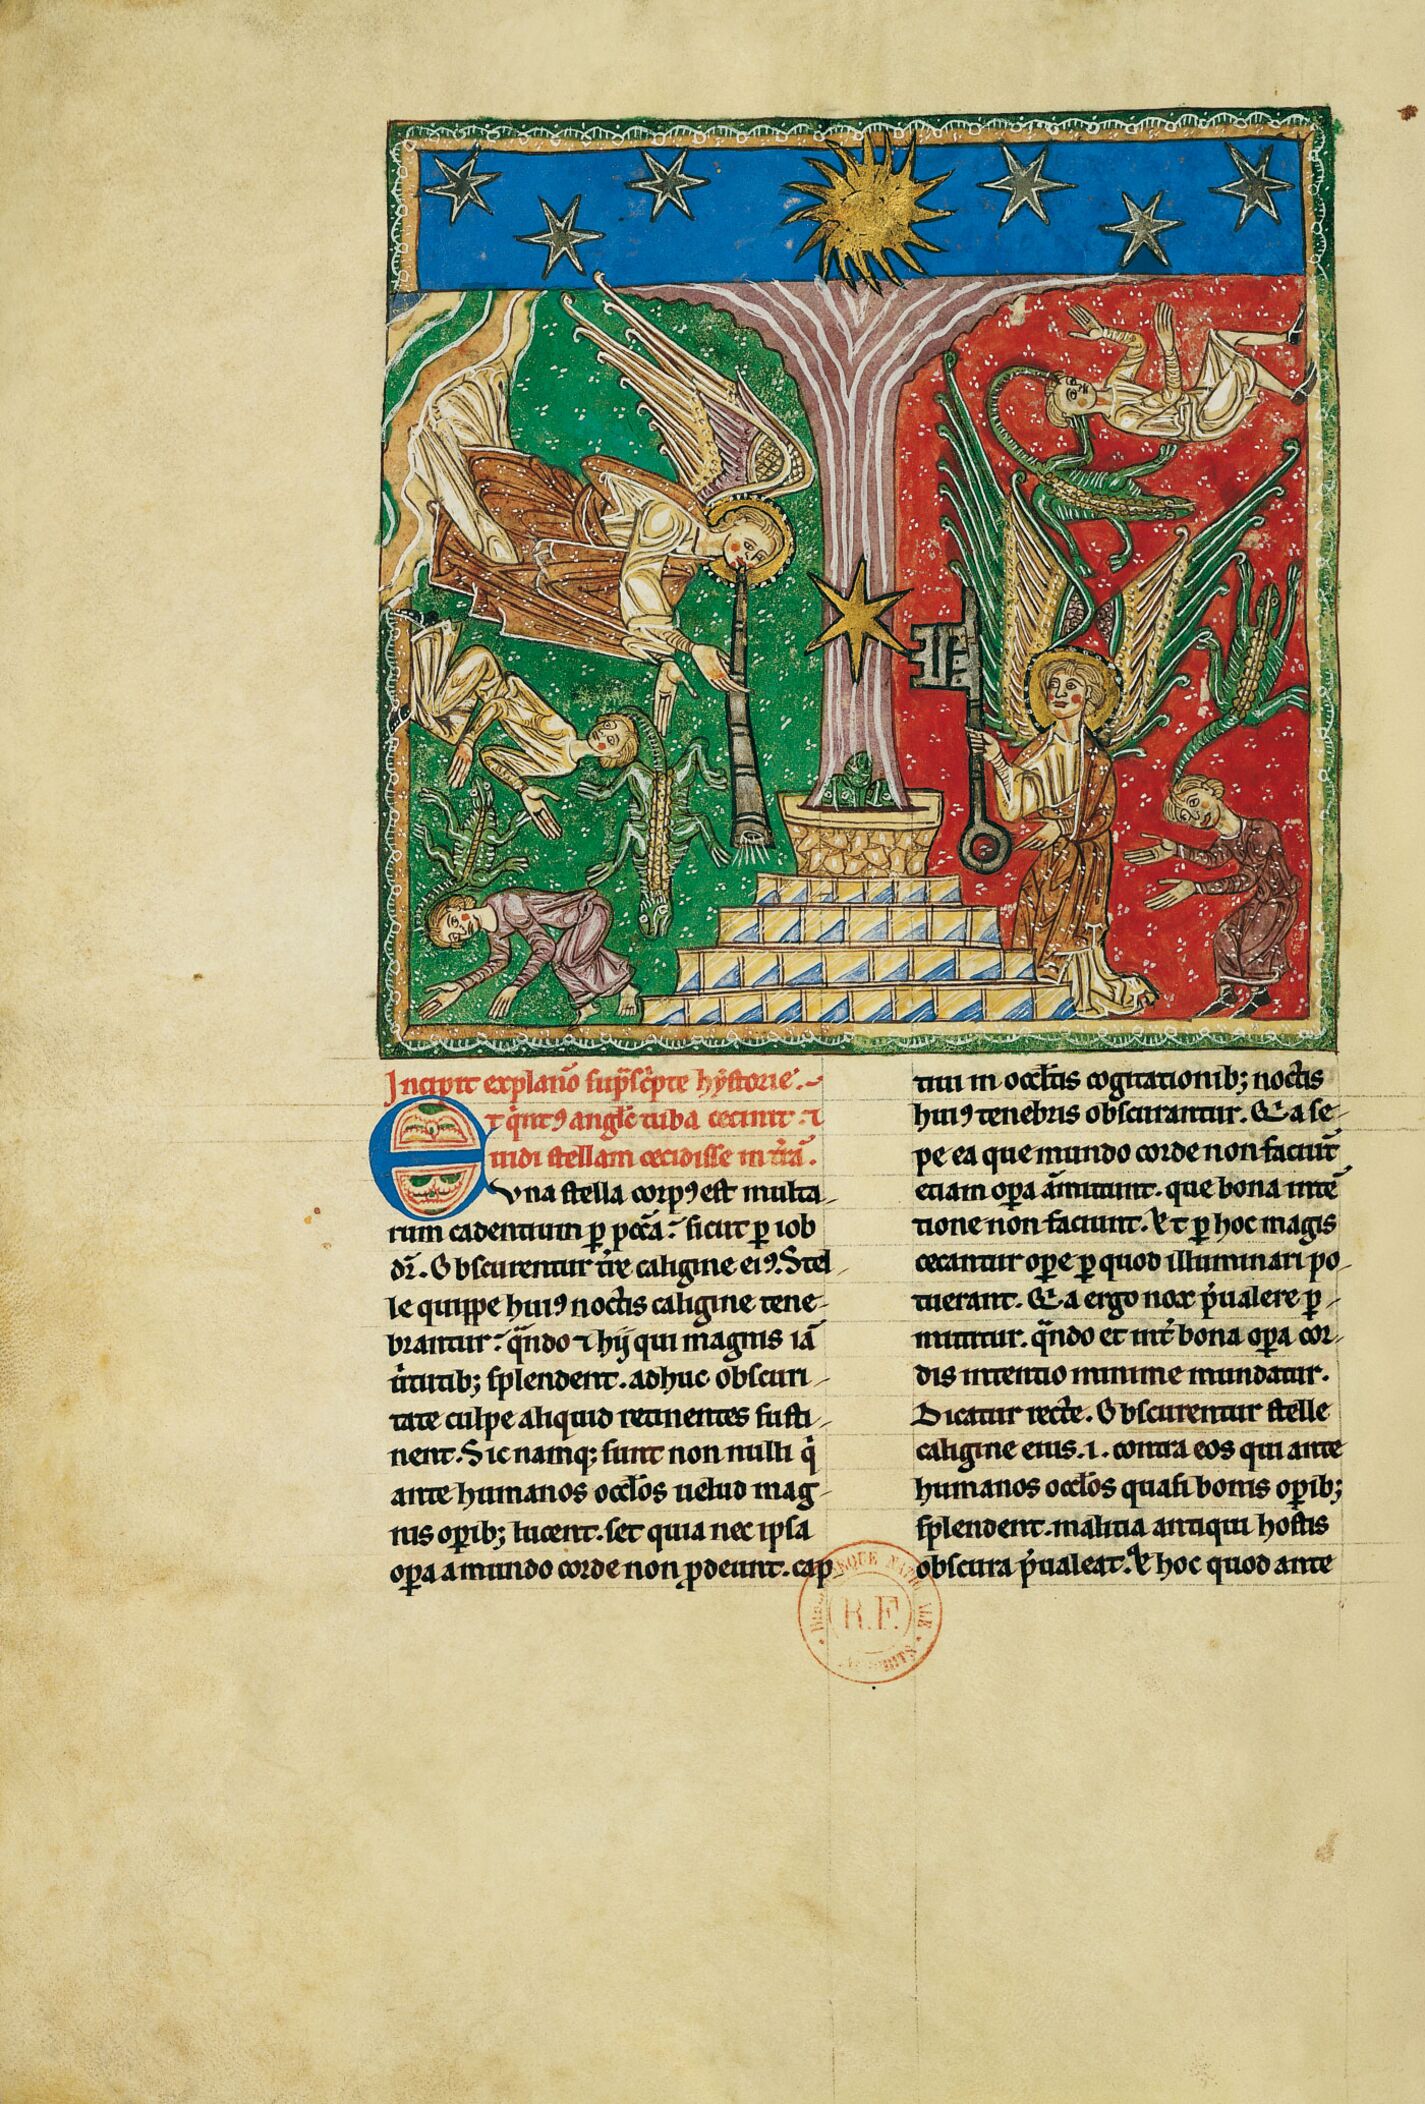 Incipit explanõ sup̃sc̃pte hystorie.
Et q̃nt9 angl̃s tuba cecinit. ⁊
uidi stellam cecidisse in tr̃ã.
Vna stella corp9 est multa-
rum cadentium p̱ pcc̃ã. sicut p̱ iob
dr̃. Obscurentur tr̃e caligine ei9. Stel-
le quippe hui9 noctis caligine tene-
brantur. q̃ndo ⁊ hij qui magnis iã
ũtutib; splendent. adhuc obscuri-
tate culpe aliquid retinentes susti-
nent. Sic namq; sunt non nulli q̃
ante humanos occl̃os uelud mag-
nis op̱ib; lucent. set quia nec ipsa
op̱a a mundo corde non p̱deunt. cap
tiui in occl̃tis cogitationib; noctis
hui9 tenebris obscurantur. Q̃a se-
pe ea que mundo corde non faciũt
etiam op̱a ãmittunt. que bona intẽ
tione non faciunt. Et p̱ hoc magis
cecantur op̱e p̱ quod illuminari po-
tuerant. Q̃a ergo nox p̃ualere p̱-
mittitur. q̃ndo et int̃ bona op̱a cor-
dis intentio minime mundatur.
Dicatur recte. Obscurentur stelle
caligine eius .i. contra eos qui ante
humanos occl̃os quasi bonis op̱ib;
splendent. malitia antiqui hostis
obscura p̃ualeat. Et hoc quod ante
R.F.